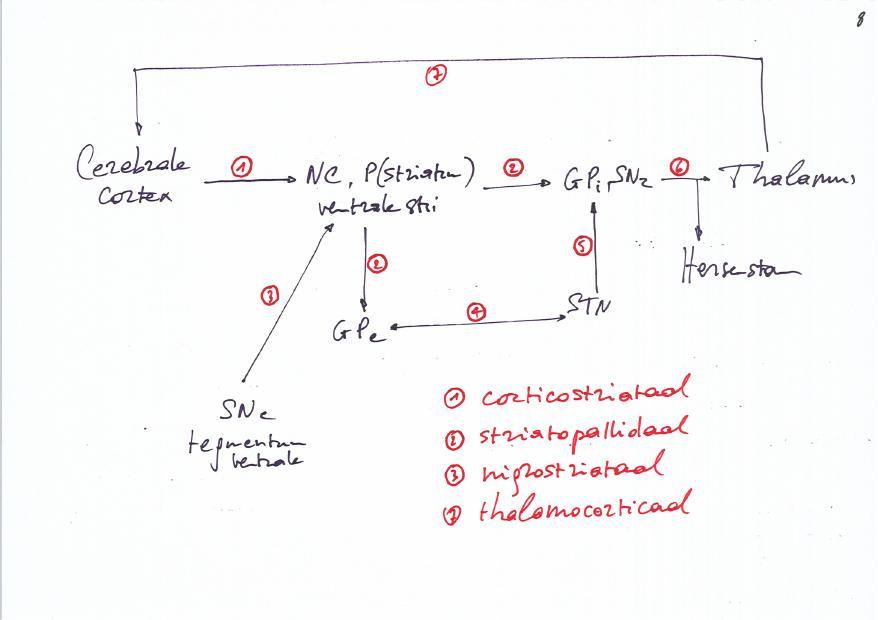 8
7
Cerebrale
cortex
1
NC, P(striatum)
ventrale stri
2
GPi, SNr
6
Thalamus
2
5
Hersenstam
3
GPe
4
STN
SNc
tegmentum
ventrale
1 corticostriataal
2 striatopallidaal
3 nigrostriataal
7 thalamocorticaal